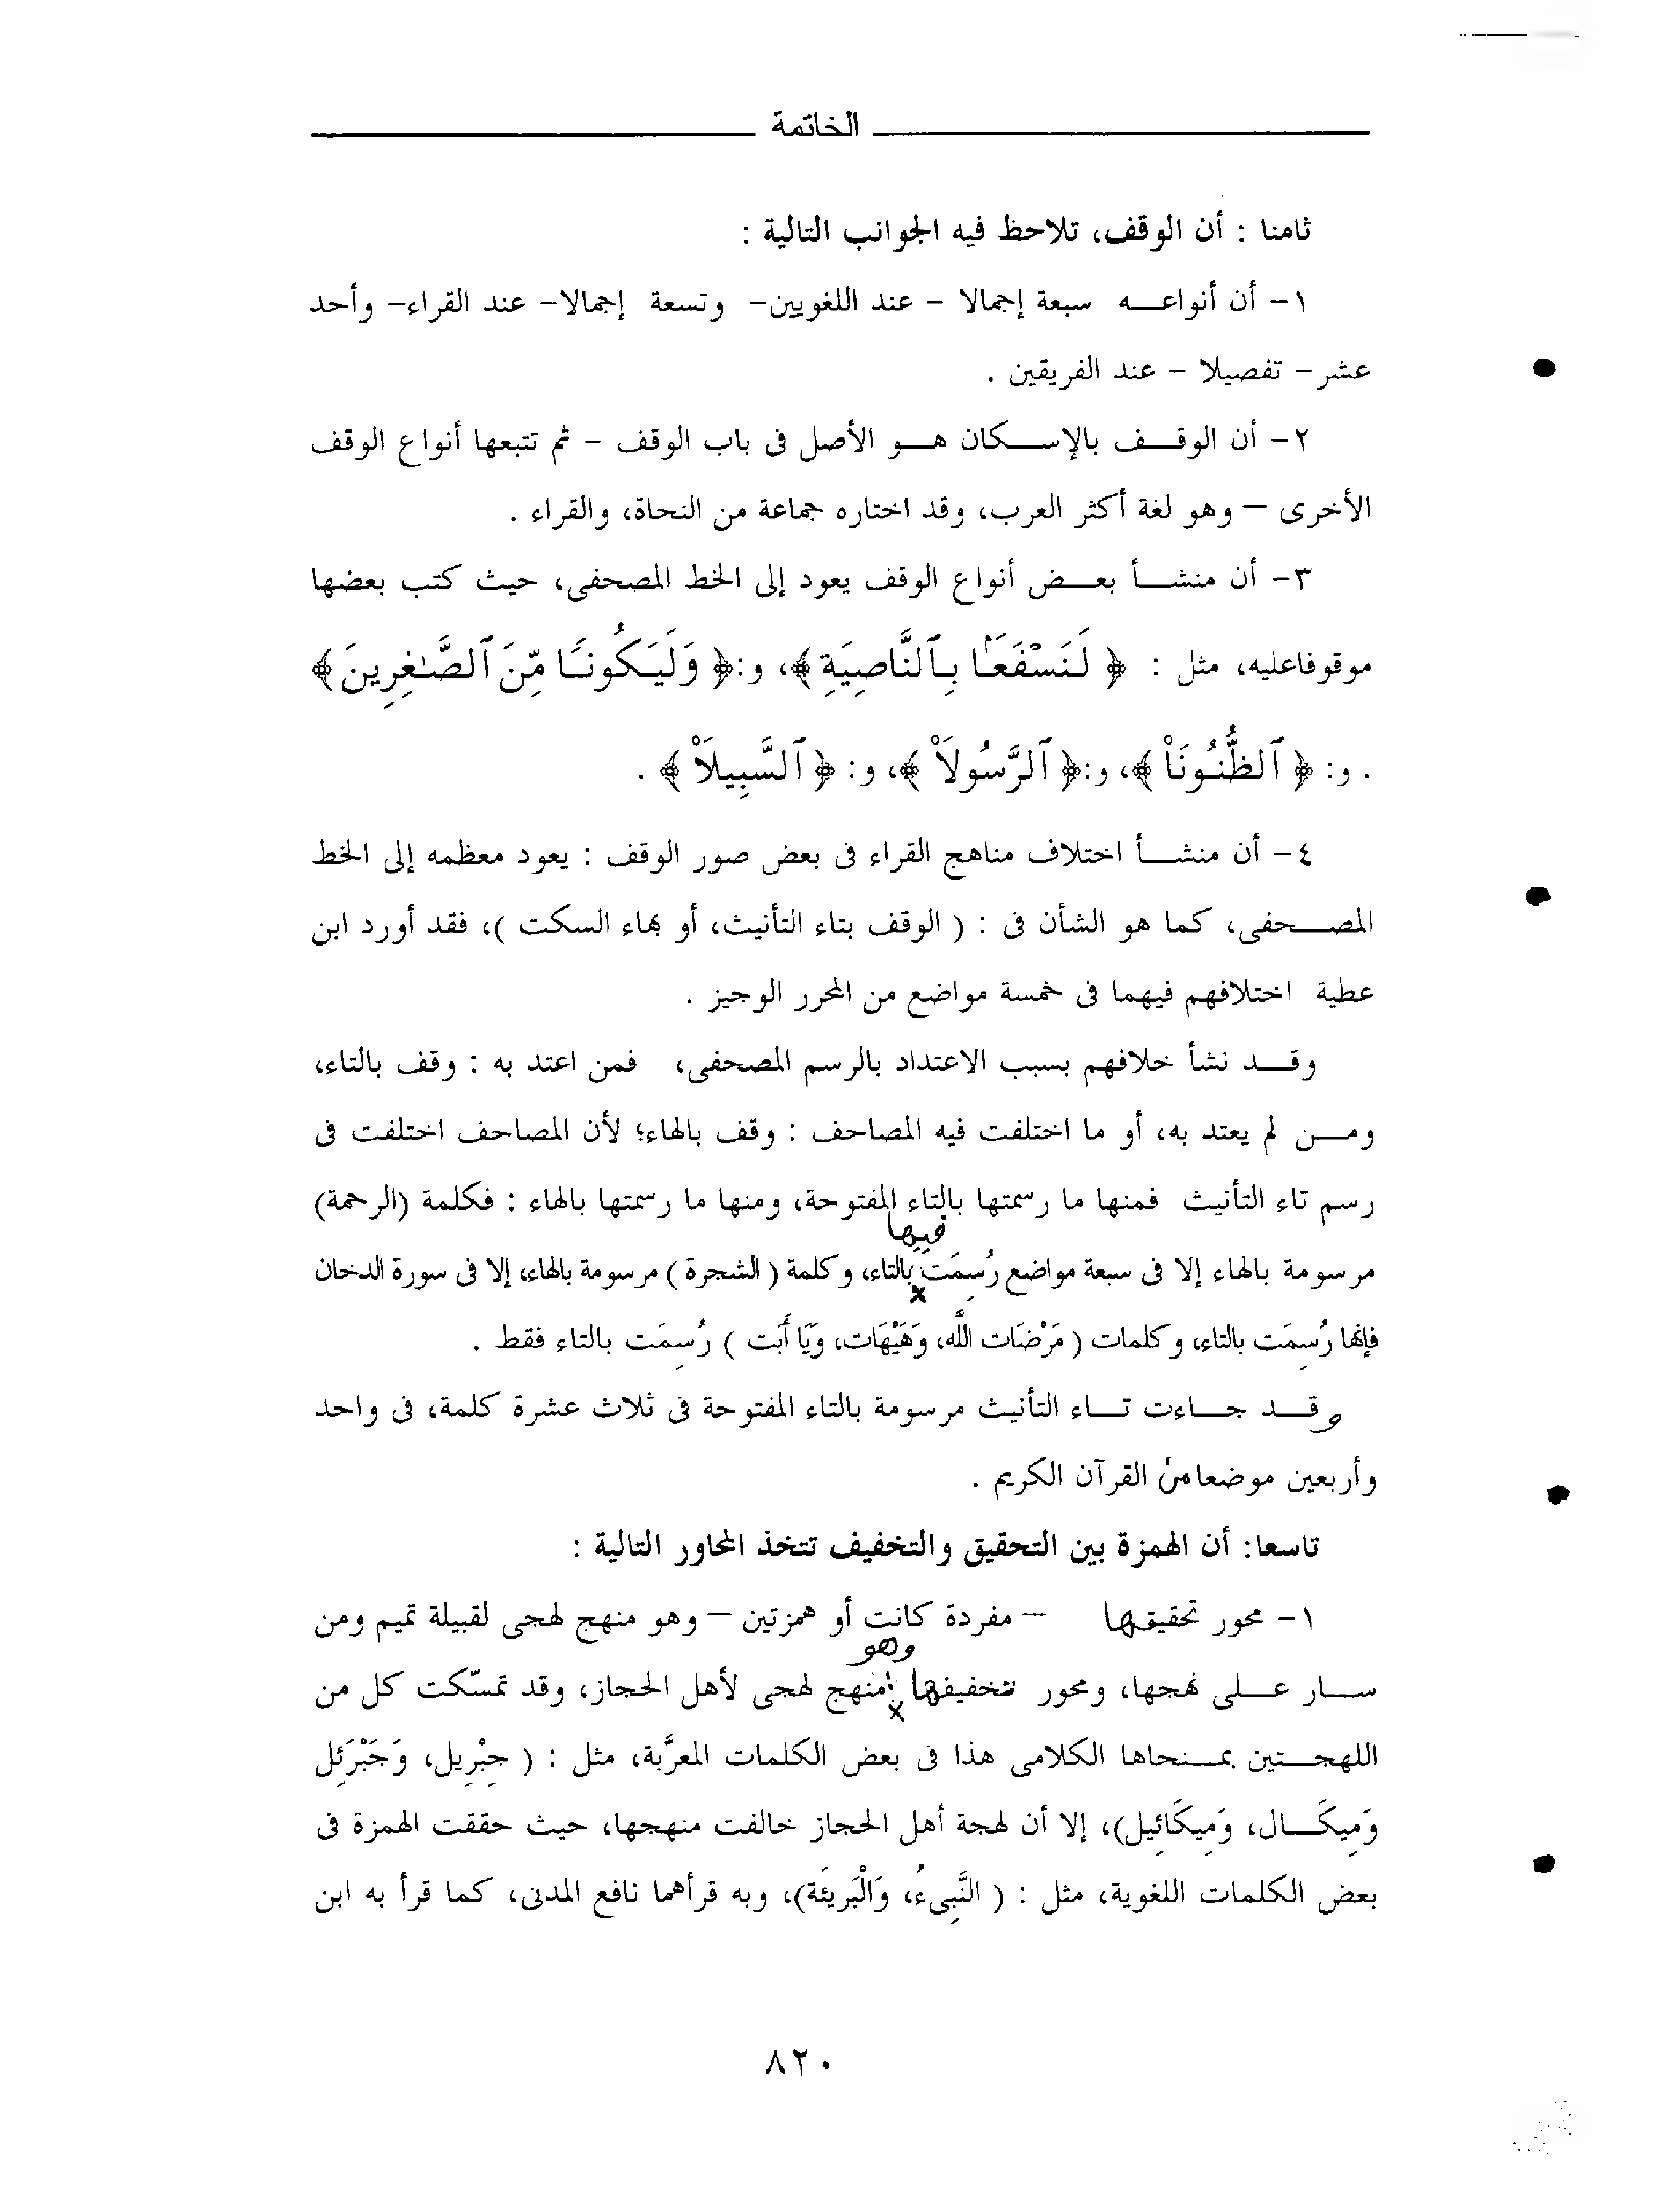 الخاتمة
ثامنا : أن الوقف، تلاحظ فيه الجوانب التالية :
١- أن أنواعـــه سبعة إجمالا - عند اللغويين- وتسعة إجمالا- عند القراء- وأحد
عشر- تفصيلا - عند الفريقين .
٢- أن الوقـــف بالإســـكان هـــو الأصل فى باب الوقف - ثم تتبعها أنواع الوقف
الأخرى – وهو لغة أكثر العرب، وقد اختاره جماعة من النحاة، والقراء .
٣- أن منشـــأ بعـــض أنواع الوقف يعود إلى الخط المصحفى، حيث كتب بعضها
موقوفاعليه، مثل : ﴿ لَنَسْفَعَۢا بِٱلنَّاصِيَةِ ﴾، و:﴿ وَلَيَكُونًا مِّنَ ٱلصَّٰغِرِينَ ﴾
. و: ﴿ ٱلظُّنُونَا۠ ﴾، و:﴿ ٱلرَّسُولَا۠ ﴾، و: ﴿ ٱلسَّبِيلَا۠ ﴾ .
٤- أن منشـــأ اختلاف مناهج القراء فى بعض صور الوقف : يعود معظمه إلى الخط
المصـــحفى، كما هو الشأن فى : ( الوقف بتاء التأنيث، أو بهاء السكت )، فقد أورد ابن
عطية اختلافهم فيهما فى خمسة مواضع من المحرر الوجيز .
وقـــد نشأ خلافهم بسبب الاعتداد بالرسم المصحفى، فمن اعتد به : وقف بالتاء،
ومـــن لم يعتد به، أو ما اختلفت فيه المصاحف : وقف بالهاء؛ لأن المصاحف اختلفت فى
رسم تاء التأنيث فمنها ما رسمتها بالتاء المفتوحة، ومنها ما رسمتها بالهاء : فكلمة (الرحمة)
فيها
مرسومة بالهاء إلا فى سبعة مواضع رُسِمَت بالتاء، وكلمة ( الشجرة ) مرسومة بالهاء، إلا فى سورة الدخان
فإنها رُسِمَت بالتاء، وكلمات ( مَرْضَات اللَّه، وَهَيْهَات، وَيَا أَبَت ) رُسِمَت بالتاء فقط .
وقـــد جـــاءت تـــاء التأنيث مرسومة بالتاء المفتوحة فى ثلاث عشرة كلمة، فى واحد
وأربعين موضعا من القرآن الكريم .
تاسعا: أن الهمزة بين التحقيق والتخفيف تتخذ المحاور التالية :
١- محور تحقيقها – مفردة كانت أو همزتين – وهو منهج لهجى لقبيلة تميم ومن
وهو
ســـار عـــلى نهجها، ومحور تخفيفها x منهج لهجى لأهل الحجاز، وقد تمسّكت كل من
اللهجـــتين بمـــنحاها الكلامى هذا فى بعض الكلمات المعرَّبة، مثل : ( جِبْرِيل، وَجَبْرَئِل
وَمِيكَـــال، وَمِيكَائِيل)، إلا أن لهجة أهل الحجاز خالفت منهجها، حيث حققت الهمزة فى
بعض الكلمات اللغوية، مثل : ( النَّبِىءُ، وَالْبَرِيئَة)، وبه قرأهما نافع المدنى، كما قرأ به ابن
٨٢٠